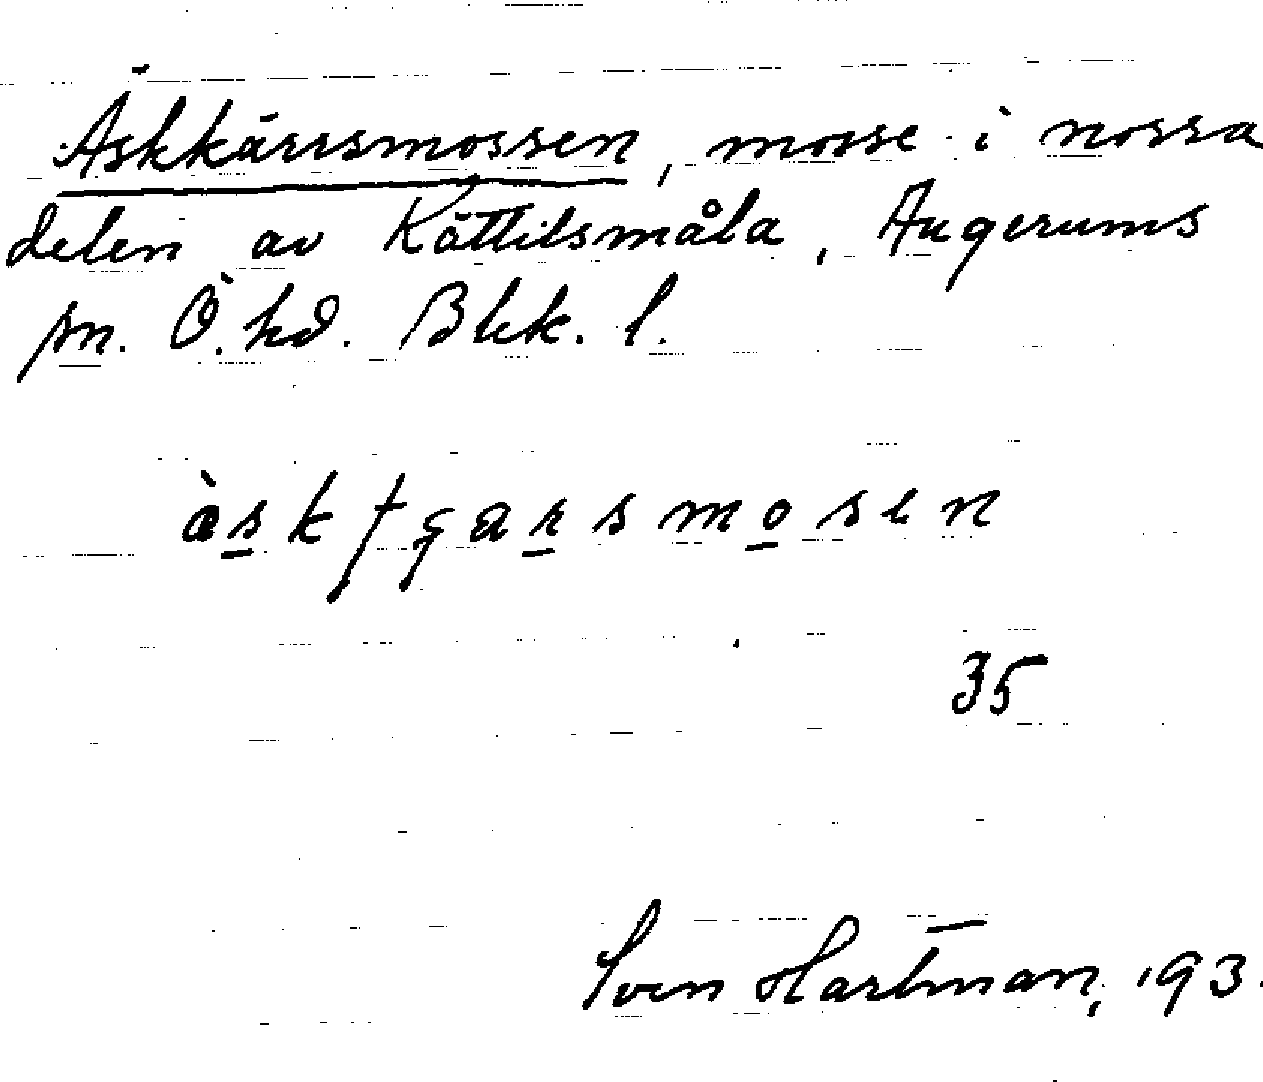 Askkärrsmossen, mosse i norra
delen av Kättilsmåla, Augerums
sn. Ö. hd. Blek. l.
àskꞙçarsmosen
35
Sven Hartman, 193